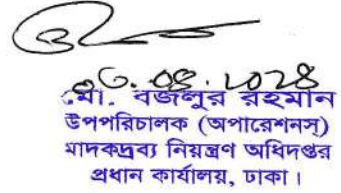 ০৬.০৪.২০২৪
মো. বজলুর রহমান
উপপরিচালক (অপারেশনস্)
মাদকদ্রব্য নিয়ন্ত্রণ অধিদপ্তর
প্রধান কার্যালয়, ঢাকা।